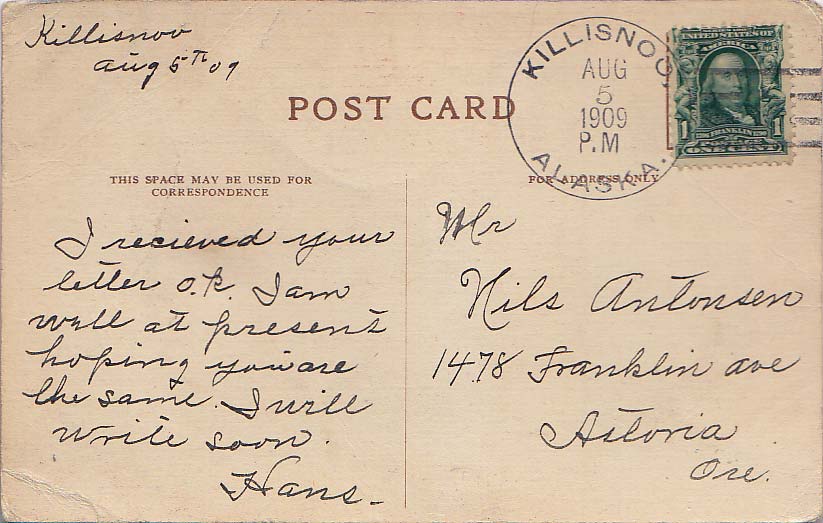 Killisnoo
Aug 5th 09
POST CARD
KILLISNOO,
AUG
5
1909
P.M
ALASKA.
UNITED STATES OF
AMERICA
1 FRANKLIN 1
ONE CENT
THIS SPACE MAY BE USED FOR
CORRESPONDENCE
FOR ADDRESS ONLY
I recieved your
letter O.K. I am
well at present
hoping you are
the same. I will
write soon.
Hans.
Mr
Nils Antonsen
1478 Franklin ave
Astoria
Ore.